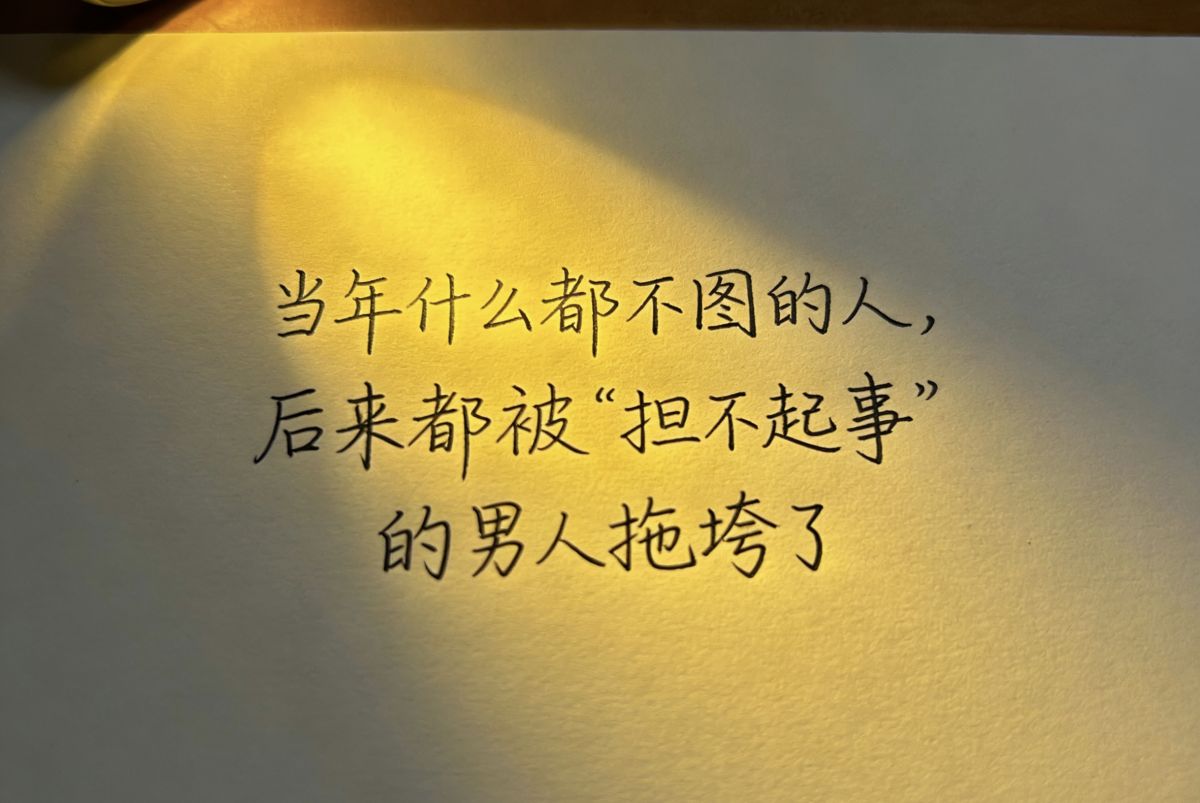 当年什么都不图的人，
后来都被“担不起事”
的男人拖垮了